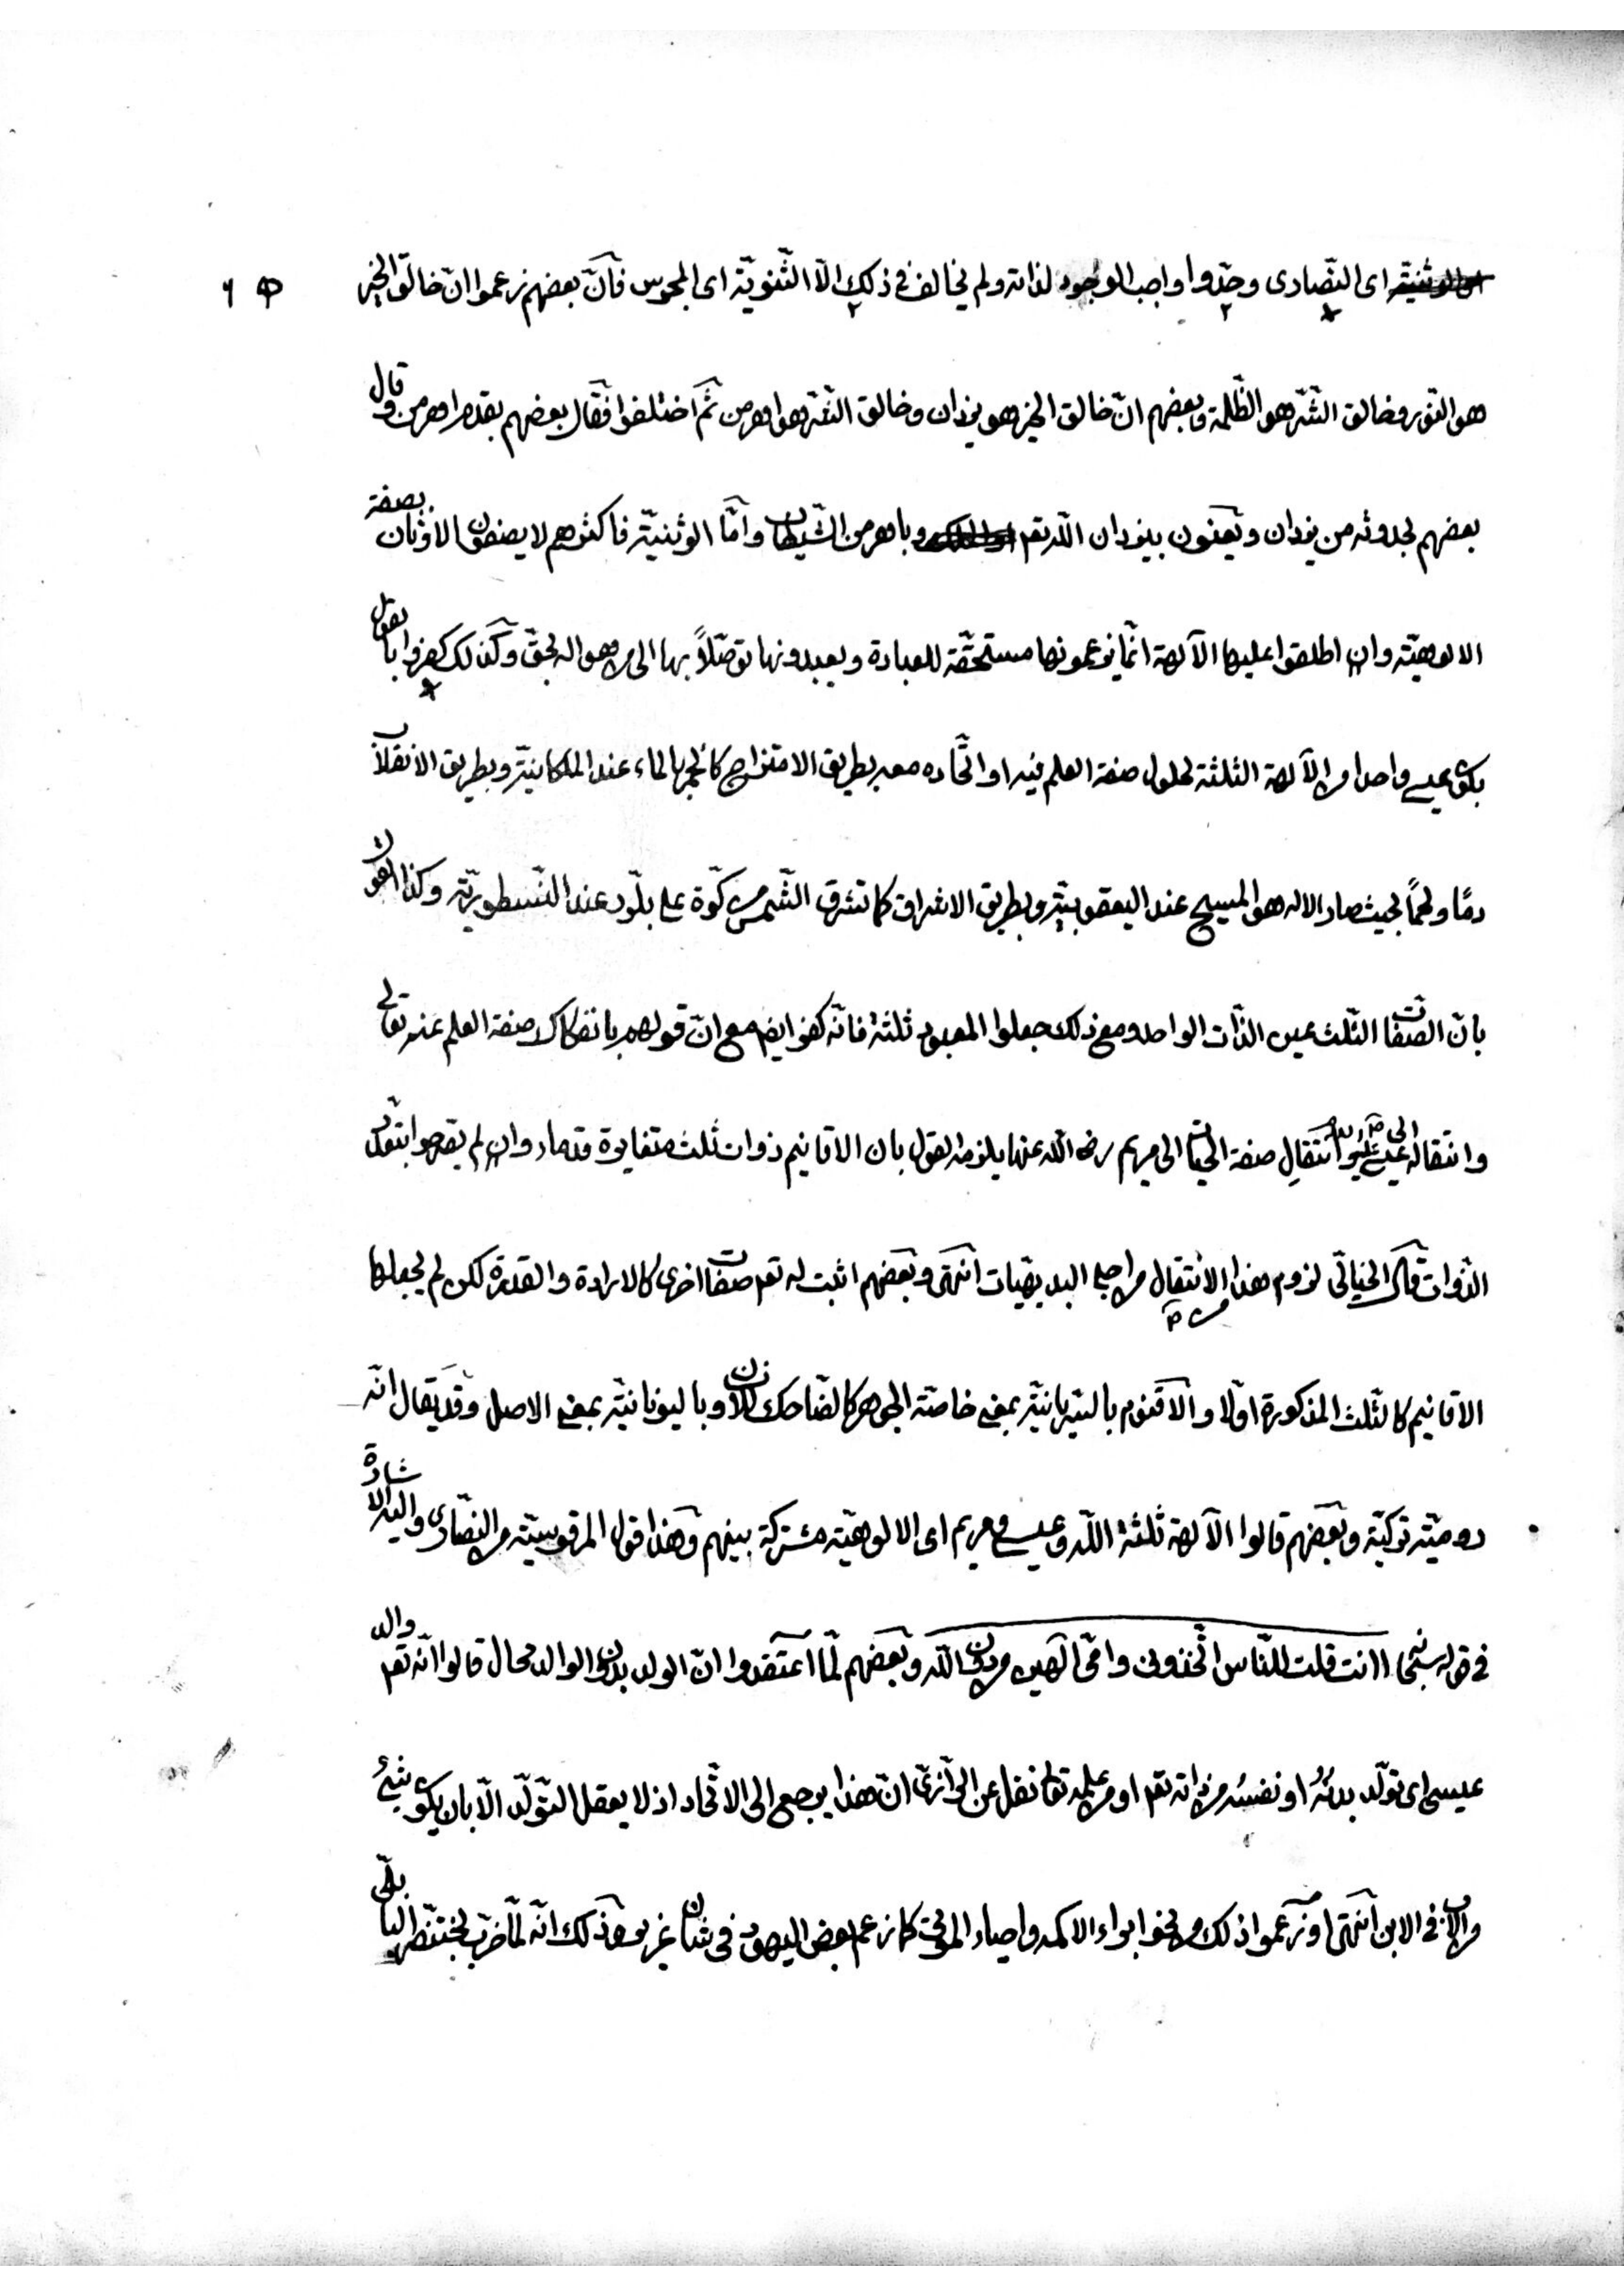 اى النّصارى وحّدوا واجب الوجود لذاته ولم يخالف فى ذلك الّا الثّنويّة اى المجوس فانّ بعضهم زعموا انّ خالق الخير ٦
هو النّور وخالق الشّر هو الظّلمة وبعضهم انّ خالق الخير هو يزدان وخالق الشّر هو اهرمن ثمّ اختلفوا فقال بعضهم بقدم اهرمن وقال
بعضهم بحدوثه من يزدان ويعنون بيزدان اللّه تعم وباهرمن الشّيطان وامّا الوثنيّة فاكثرهم لا يصفون الاوثان بصفة
الالوهيّة وان اطلقوا عليها الآلهة انّما يزعمونها مستحقّة للعبادة ويعبدونها توصّلاً بها الى من هو اله بحقّ وكذلك كفروا با بقول
بكون عيسى واحدا من الآلهة الثلثة لحلول صفة العلم فيه او اتّحاده معه بطريق الامتزاج كالخمر بالماء عند الملكانيّة وبطريق الانقلاب
دمًا ولحمًا بحيث صار الاله هو المسيح عند اليعقوبيّة وبطريق الاشراق كما تشرق الشّمس من كوّة على بلّور عند النّسطوريّة وكذا القول
بانّ الصّفات الثّلث عين الذّات الواحد ومع ذلك جعلوا المعبود ثلثة فانّه كفر ايض مع انّ قولهم بانفكاك صفة العلم عنه تعالى
وانتقاله الى عيسى وانتقال صفة الحيات الى مريم رضى اللّه عنها يلزمه القول بان الاقانيم ذوات ثلث متغايرة قدماء وان لم يصرحوا بتعدّد
الذّوات قال الخيالى لزوم هذا الانتقال من اجلى البديهيّات انتهى وبعضهم اثبت له تعم صفات اخرى كالارادة والقدرة لكن لم يجعلها
الاقانيم كالثلث المذكورة اوّلا والاقنوم بالسّريانيّة بمعنى خاصّة الجوهر كالضّاحك للانسان وباليونانيّة بمعنى الاصل وقد يقال انّه
روميّة تركيّة وبعضهم قالوا الآلهة ثلثة اللّه وعيسى ومريم اى الالوهيّة مشتركة بينهم وهذا قول المرقوسيّة من النّصارى واليه الاشارة
فى قوله ءانت قلت للنّاس اتّخذونى وامّى الهين من دون اللّه وبعضهم لمّا اعتقدوا انّ الولد بدون الوالد محال قالوا انّه تعم والد
عيسى اى تولّد بدنُه او نفسُه من ذاته تعم او من علمه تعالى نقل عن الرّازىّ انّ هذا يرجع الى الاتّحاد اذ لا يعقل التّولّد الّا بان يكون شئ
من الاب فى الابن انتهى او زعموا ذلك من نحو ابراء الاكمه واحياء الموتى كما زعم بعض اليهود فى شان عزير وذلك انّه لمّا خرب بختنصّر